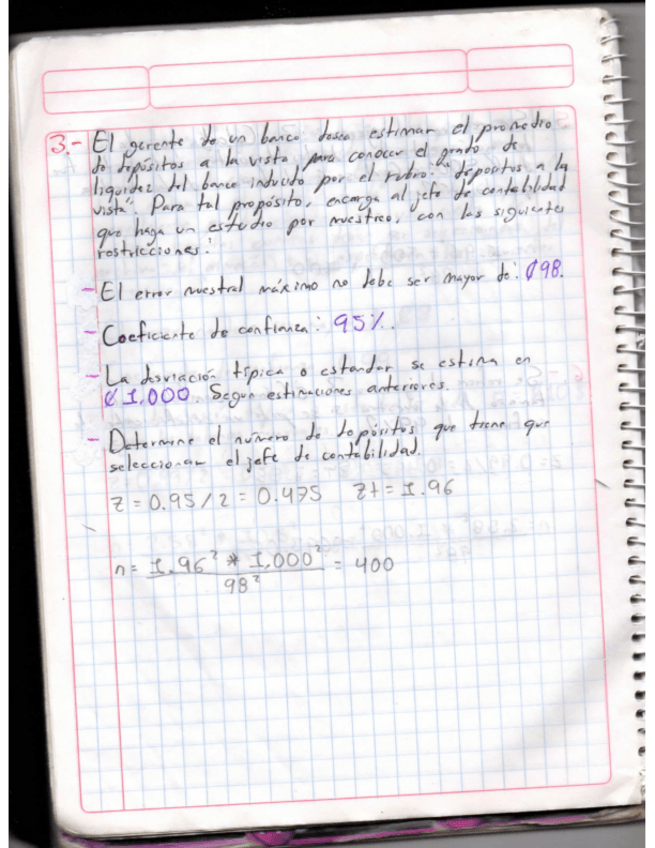 3.- El gerente de un banco desea estimar el promedio
de depósitos a la vista, para conocer el grado de
liquidez del banco inducido por el rubro: "depositos a la
vista". Para tal propósito, encarga al jefe de contabilidad
que haga un estudio por muestreo, con las siguientes
restricciones:
- El error muestral máximo no debe ser mayor de: ₡98.
- Coeficiente de confianza: 95%.
- La desviación típica o estandar se estima en
₡1,000 Segun estimaciones anteriores.
- Determine el número de depósitos que tiene que
seleccionar el jefe de contabilidad.
Z = 0.95/2 = 0.475 Zt = 1.96
n = 1.96² * 1,000² = 400
98²